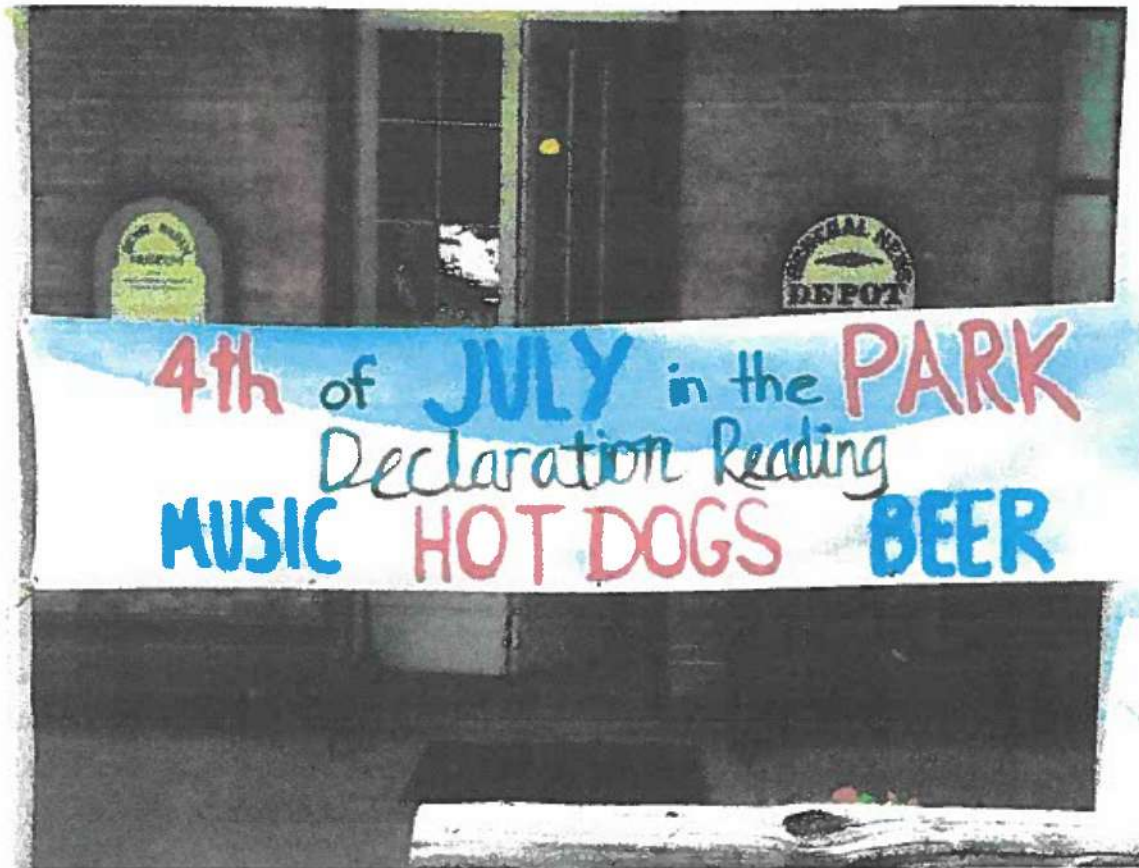 DEPOT
4th of JULY in the PARK
Declaration Reading
MUSIC HOT DOGS BEER